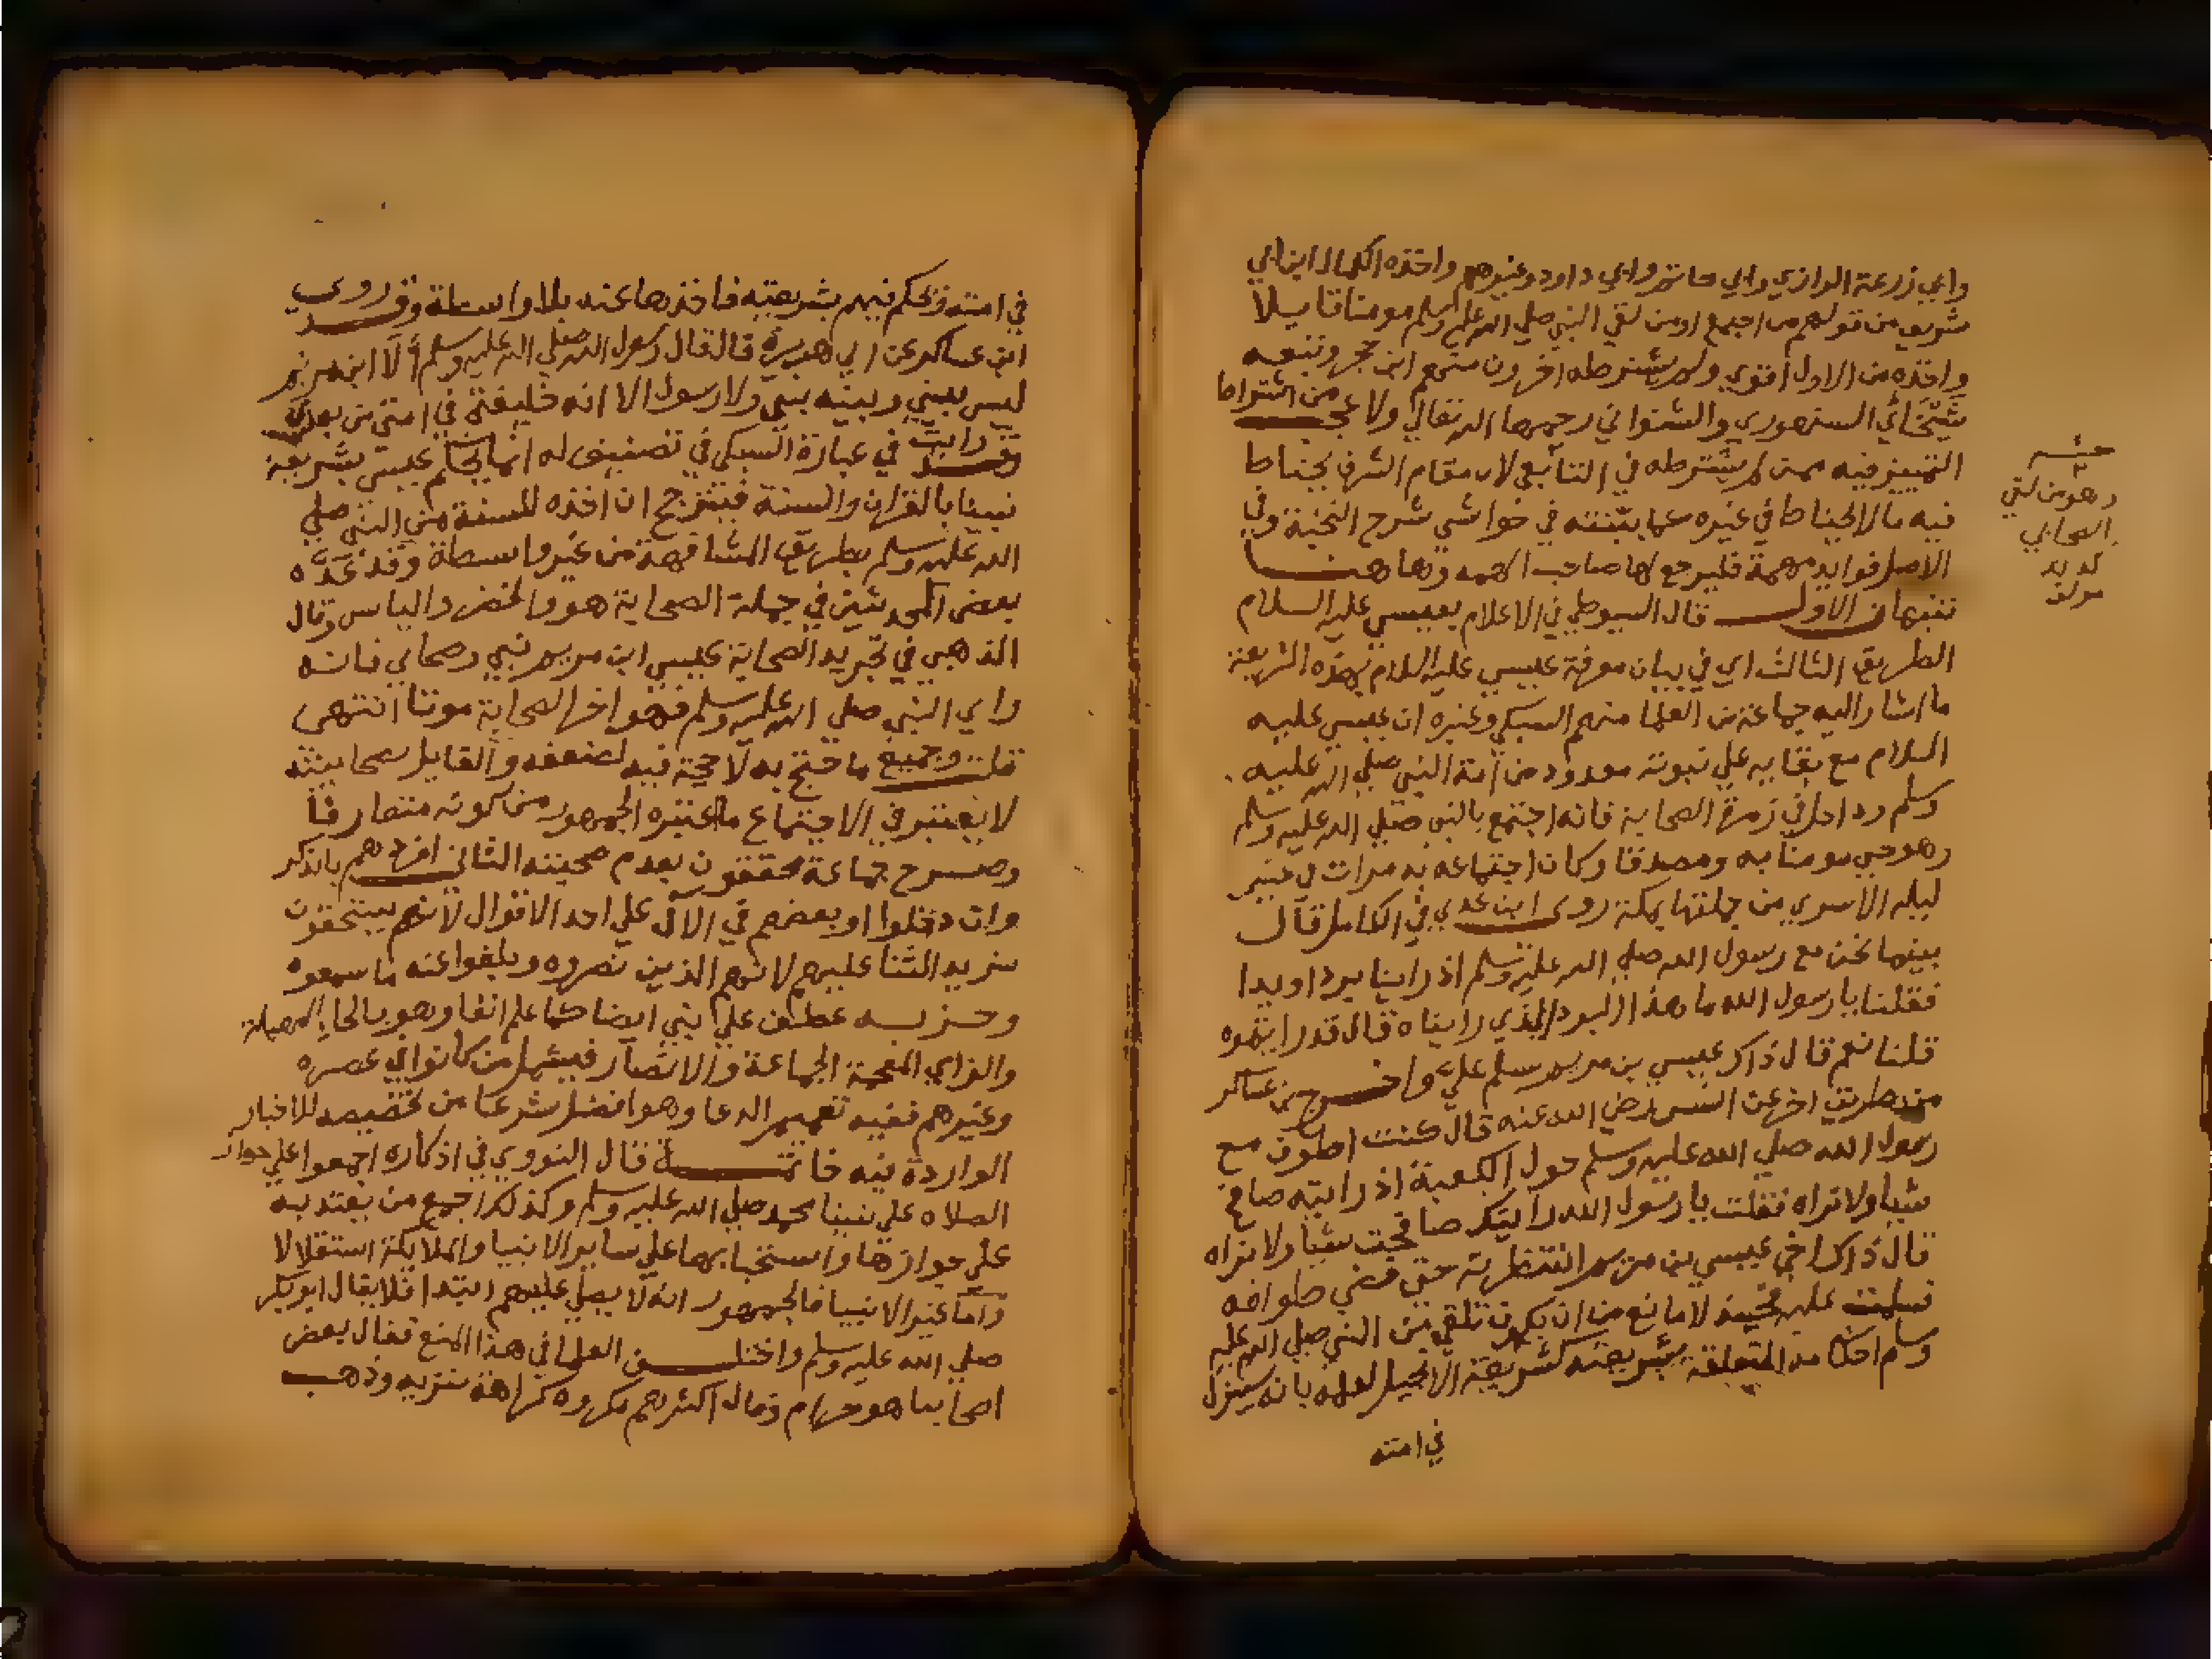 وابي زرعة الرازي وابي حاتم وابي داود وغيرهم واخذه الكمال ابن ابي
شريف من قولهم من اجتمع او من لقي النبي صلي الله عليه وسلم مومنا قايلا
واخذه من الاول اقوي ولم يشترطه اخرون منهم ابن حجر وتبعه
شيخاي السنهوري والشنواني رحمهما الله تعالي ولا من اشتراط
التمييز فيه ممن لم يشترطه في التابعي لان مقام الشرف يحتاط
فيه ما لا يحتاط في غيره كما بينته في حواشي شرح النخبة وفي
الاصل فوايد مهمة فليرجع لها صاحب الهمه وهاهنا
تنبيهان الاول قال السيوطي في الاعلام بعيسي عليه السلام
الطريق الثالث اي في بيان معرفة عيسي عليه السلام بهذه الشريعة
ما اشار اليه جماعة من العلما منهم السبكي وغيره ان عيسي عليه
السلام مع بقايه علي نبوته معدود من امة النبي صلي الله عليه
وسلم وداخل في زمرة الصحابة فانه اجتمع بالنبي صلي الله عليه وسلم
وهو حي مومنا به ومصدقا وكان اجتماعه به مرات في غير
ليلة الاسري من جملتها بمكة روي ابن عدي في الكامل قال
بينما نحن مع رسول الله صلي الله عليه وسلم اذ راينا بردا ويدا
فقلنا يا رسول الله ما هذا البرد الذي رايناه قال قد رايتموه
قلنا نعم قال ذاك عيسي بن مريم سلم علي واخرج بن عساكر
من طريق اخر عن انس رضي الله عنه قال كنت اطوف مع
رسول الله صلي الله عليه وسلم حول الكعبة اذ رايته صافح
شيا ولا نراه فقلت يا رسول الله رايتك صافحت شيا ولا نراه
قال ذاك اخي عيسي بن مريم انتظرته حتي قضي طوافه
فسلمت عليه فحينيذ لا مانع من ان يكون تلقي من النبي صلي الله عليه
وسلم احكامه المتعلقة بشريعته كشريعة الانجيل لعلمه بانه سينزل
في امته
وهو من لقي
الصحابي
في امته ويحكم فيهم بشريعته فاخذها عنه بلا واسطة وقد روي
ابن عساكر عن ابي هريرة قال قال رسول الله صلي الله عليه وسلم ألا ان ابن مريم
ليس بيني وبينه نبي ولا رسول الا انه خليفتي في امتي من بعدي
وقد رايت في عبارة السبكي في تصنيف له انما يحكم عيسي بشريعة
نبينا بالقران والسنة فيترجح ان اخذه للسنة من النبي صلي
الله عليه وسلم بطريق المشافهة من غير واسطة وقد عده
بعض المحدثين في جملة الصحابة هو والخضر والياس وقال
الذهبي في تجريد الصحابة عيسي ابن مريم نبي وصحابي فانه
راي النبي صلي الله عليه وسلم فهو اخر الصحابة موتا انتهي
قلت وجميع ما احتج به لا حجة فيه لضعفه والقايل بصحابيته
لا يعتبر في الاجتماع ما اعتبره الجمهور من كونه متعارفا
وصرح جماعة محققون بعدم صحبته الثاني افردهم بالذكر
وان دخلوا او بعضهم في الال علي احد الاقوال لانهم يستحقون
مزيد الثنا عليهم لانهم الذين نصروه وبلغوا عنه ما سمعوه
وحزبه عطف علي نبي ايضا كما علم انفا وهو بالحا المهملة
والزاي المعجمة الجماعة والانصار فيشمل من كانوا في عصره
وغيرهم ففيه تعميم الدعا وهو افضل شرعا من تخصيصه للاخبار
الواردة فيه خاتمة قال النووي في اذكاره اجمعوا علي جواز
الصلاه علي نبينا محمد صلي الله عليه وسلم وكذلك اجمع من يعتد به
علي جوازها واستحبابها علي ساير الانبيا والملايكة استقلالا
واما غير الانبيا فالجمهور انه لا يصلي عليهم ابتدا فلا يقال ابو بكر
صلي الله عليه وسلم واختلف العلما في هذا المنع فقال بعض
اصحابنا هو حرام وقال اكثرهم مكروه كراهة تنزيه وذهب